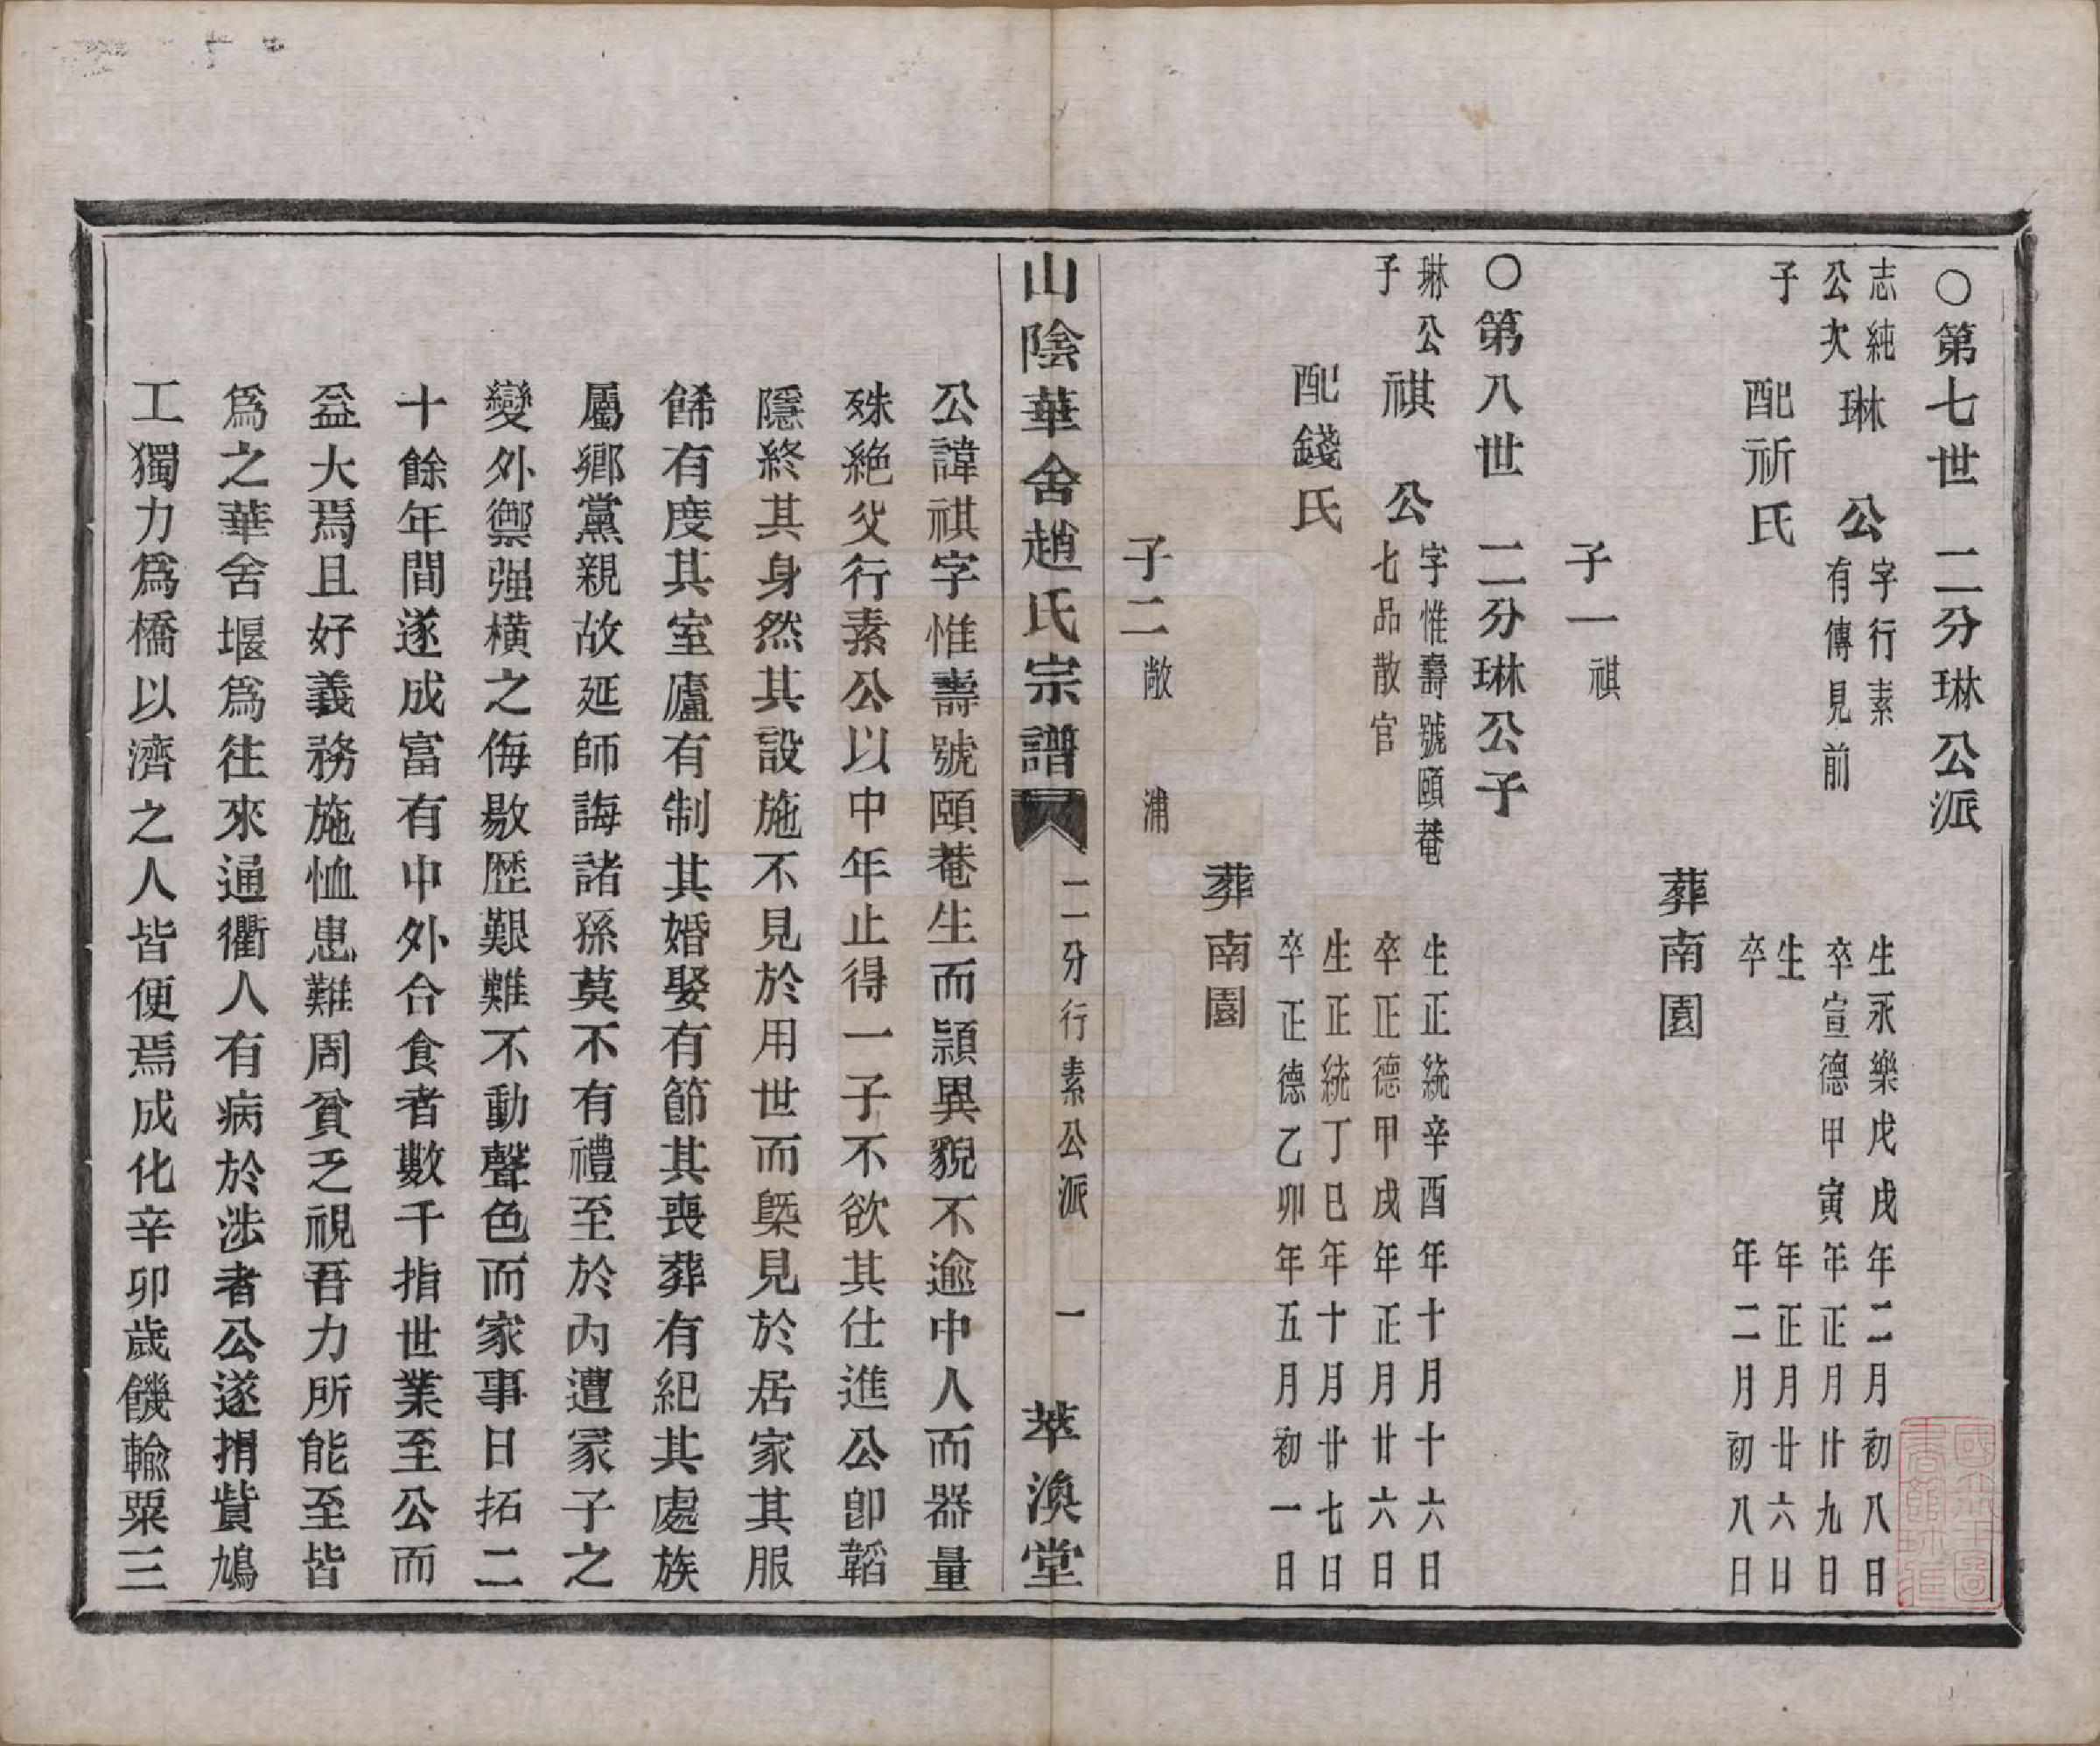 ○第七世 二分琳公派
志純公次子
琳公
字行素
有傳見前
生永樂戊戌年二月初八日
卒宣德甲寅年正月廿九日
配祈氏
生 年正月廿六日
卒 年二月初八日
葬南園
子一 祺
○第八世 二分琳公子
琳公子
祺公
字惟壽號頤菴
七品散官
生正統辛酉年十月十六日
卒正德甲戌年正月廿六日
配錢氏
生正統丁巳年十月廿七日
卒正德乙卯年五月初一日
葬南園
子二 敞 浦
山陰華舍趙氏宗譜 二分行素公派 一 萃渙堂
公諱祺字惟壽號頤菴生而頴異貌不逾中人而器量
殊絶父行素公以中年止得一子不欲其仕進公卽韜
隱終其身然其設施不見於用世而槩見於居家其服
餙有度其室廬有制其婚娶有節其喪葬有紀其處族
屬鄉黨親故延師誨諸孫莫不有禮至於內遭冡子之
變外禦强橫之侮敭歷艱難不動聲色而家事日拓二
十餘年間遂成富有中外合食者數千指世業至公而
益大焉且好義務施恤患難周貧乏視吾力所能至皆
爲之華舍堰爲往來通衢人有病於涉者公遂捐貲鳩
工獨力爲橋以濟之人皆便焉成化辛卯歲饑輸粟三